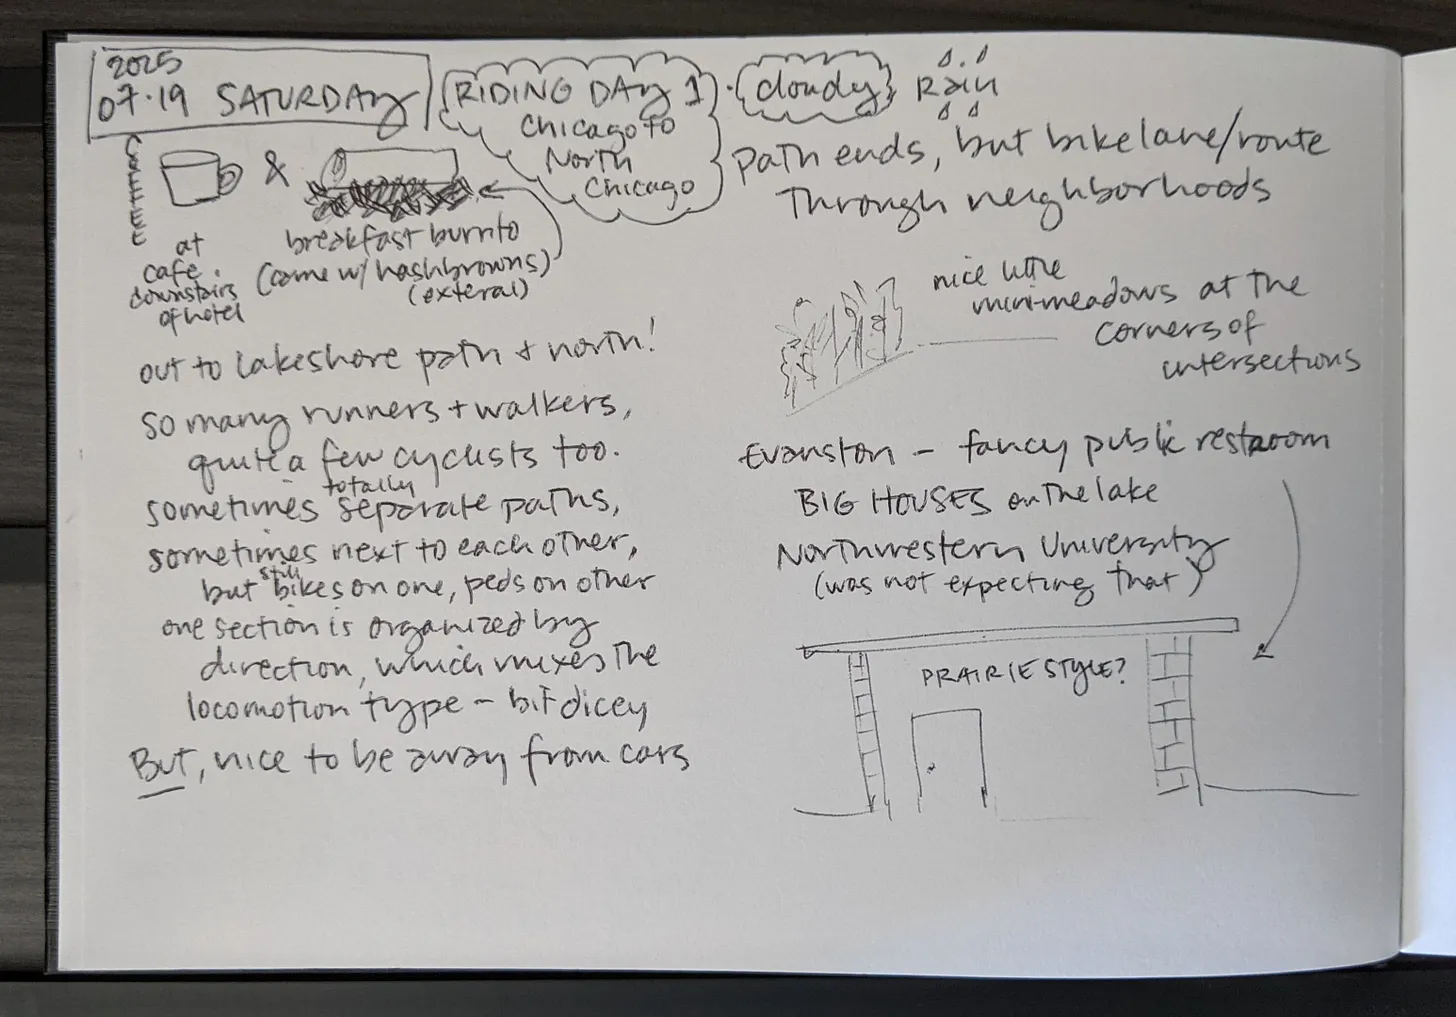 2025
07·19 SATURDAY
RIDING DAY 1
Chicago to
North
Chicago
cloudy
Rain
COFFEE
&
at
cafe
downstairs
of hotel
breakfast burrito
(came w/ hashbrowns)
(exteral)
out to lakeshore path + north!
so many runners + walkers,
quite a few cyclists too.
sometimes totally separate paths,
sometimes next to each other,
but still bikes on one, peds on other
one section is organized by
direction, which mixes the
locomotion type – bit dicey
But, nice to be away from cars
path ends, but bike lane/route
through neighborhoods
nice little
mini-meadows at the
corners of
intersections
Evanston – fancy public restroom
BIG HOUSES on the lake
Northwestern University
(was not expecting that)
PRAIRIE STYLE?